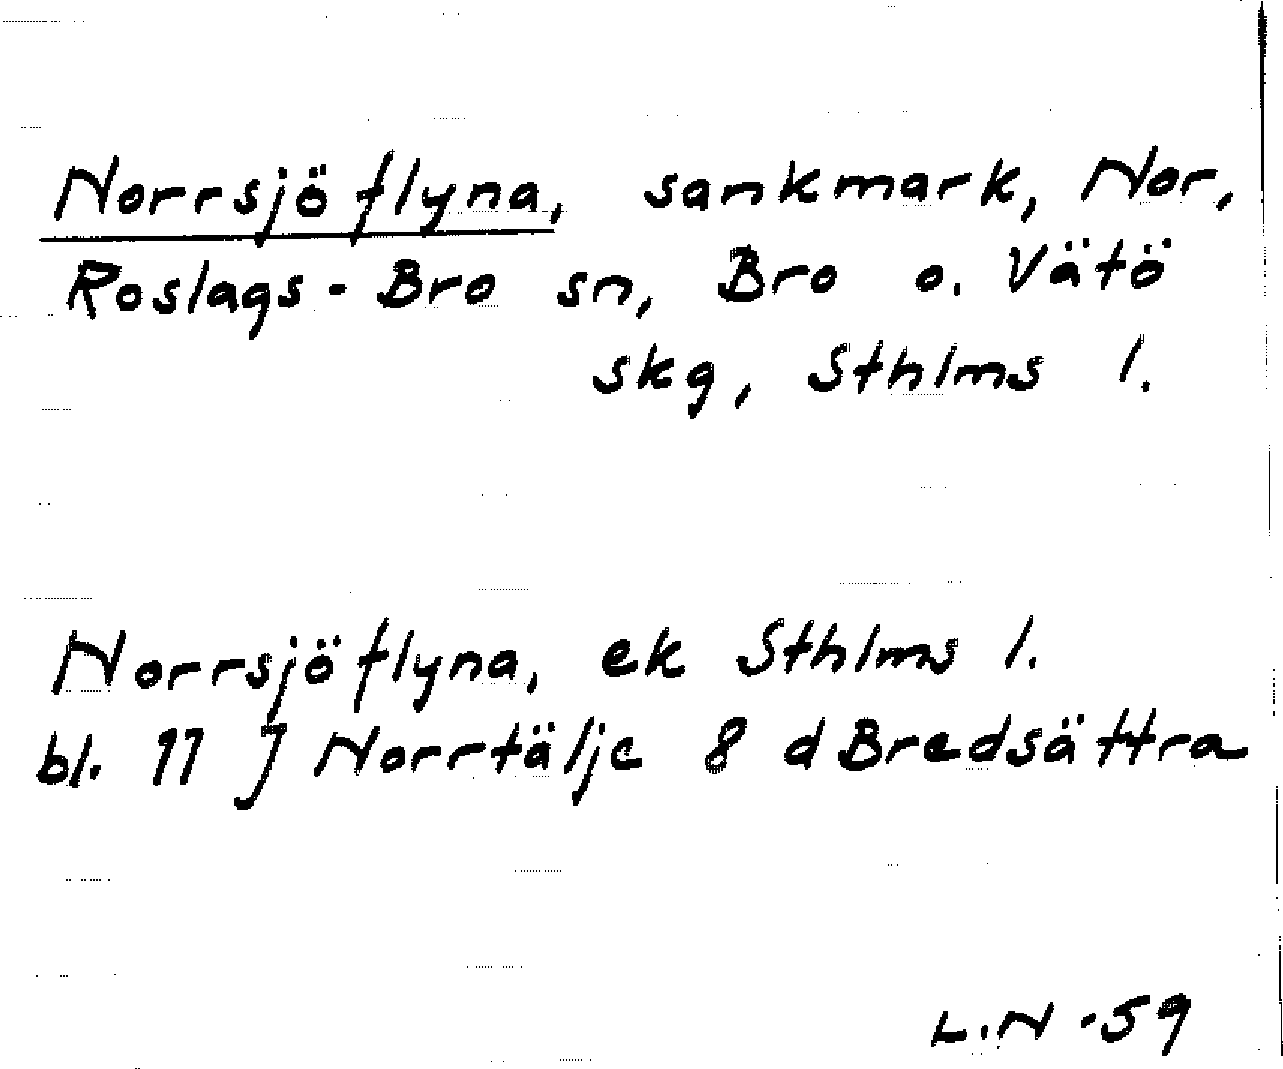 Norrsjöflyna, sankmark, Nor,
Roslags-Bro sn, Bro o. Vätö
skg, Sthlms l.
Norrsjöflyna, ek Sthlms l.
bl. 11 J Norrtälje 8 d Bredsättra
L.N -59